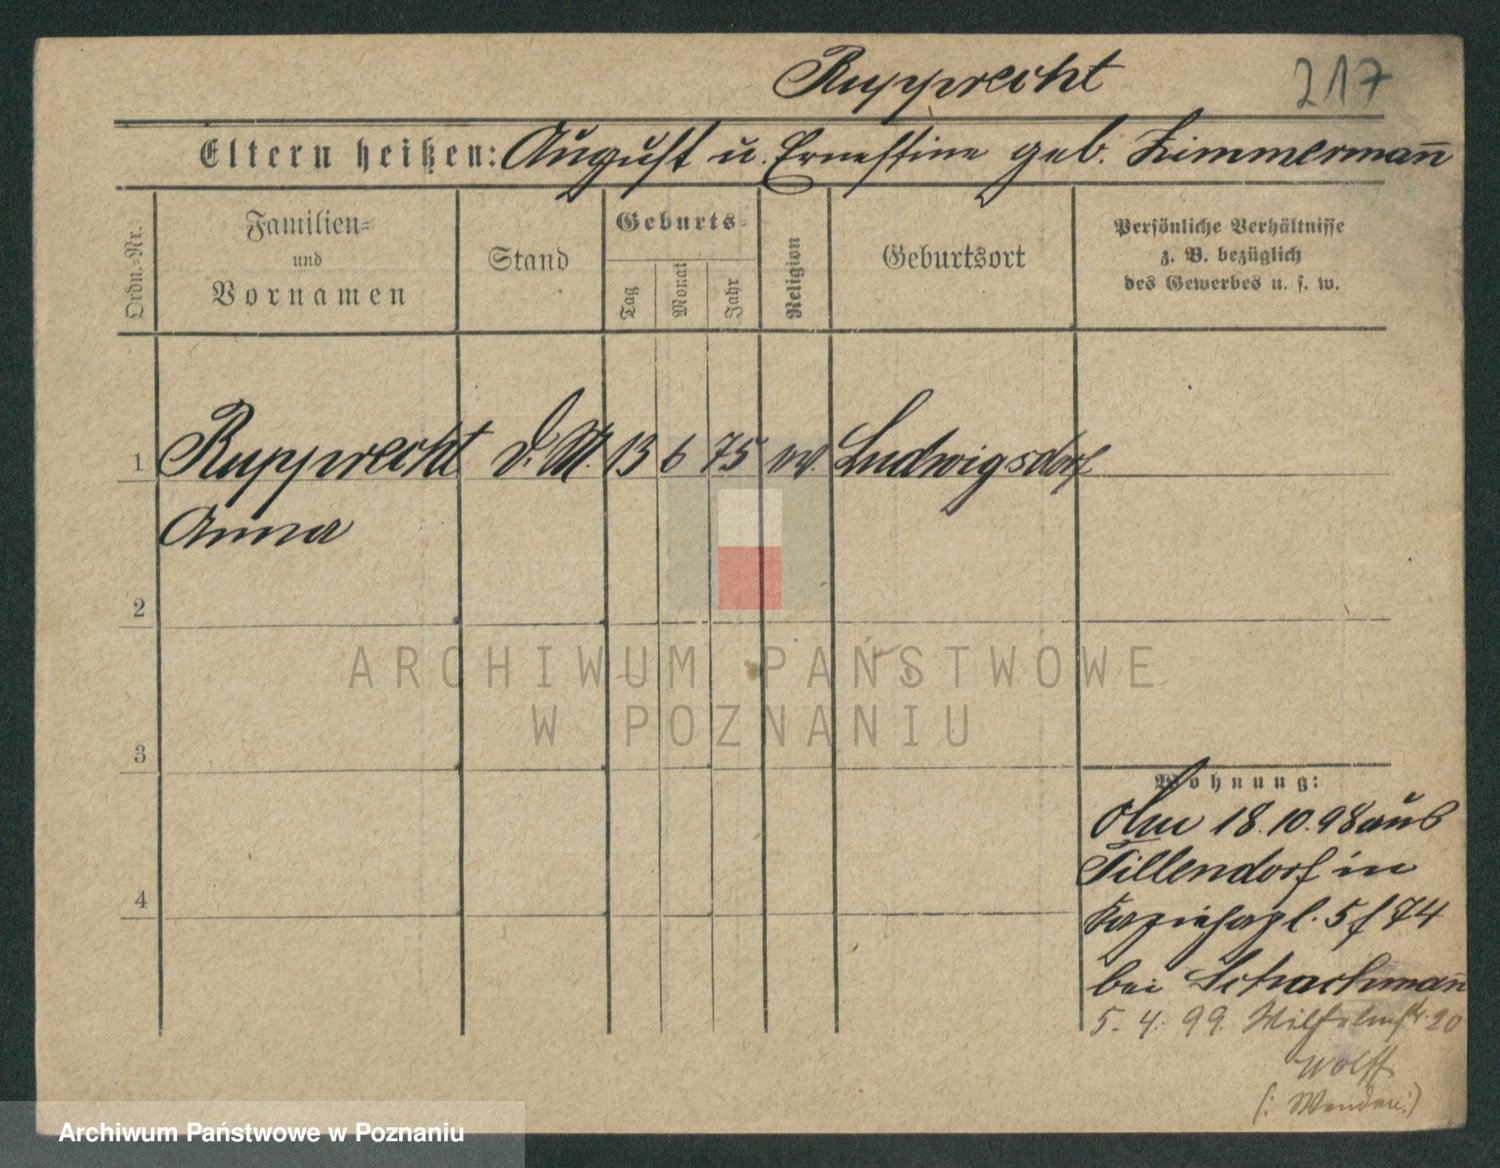 Rupprecht 217
Eltern heißen: August u. Ernestine geb. Zimmermann
Ordn.-Nr.
Familien-
und
Vornamen
Stand
Geburts-
Tag
Monat
Jahr
Religion
Geburtsort
Persönliche Verhältnisse
z. B. bezüglich
des Gewerbes u. s. w.
1 Rupprecht d. M. 13 6 75 ev. Ludwigsdorf
Anna
2
3
4
ARCHIWUM PAŃSTWOWE
W POZNANIU
Wohnung:
18.10.98 aus
Tillendorf in
5/74
bei Schachmann
5. 4. 99. Wilhelmstr. 20
Wolff
Archiwum Państwowe w Poznaniu